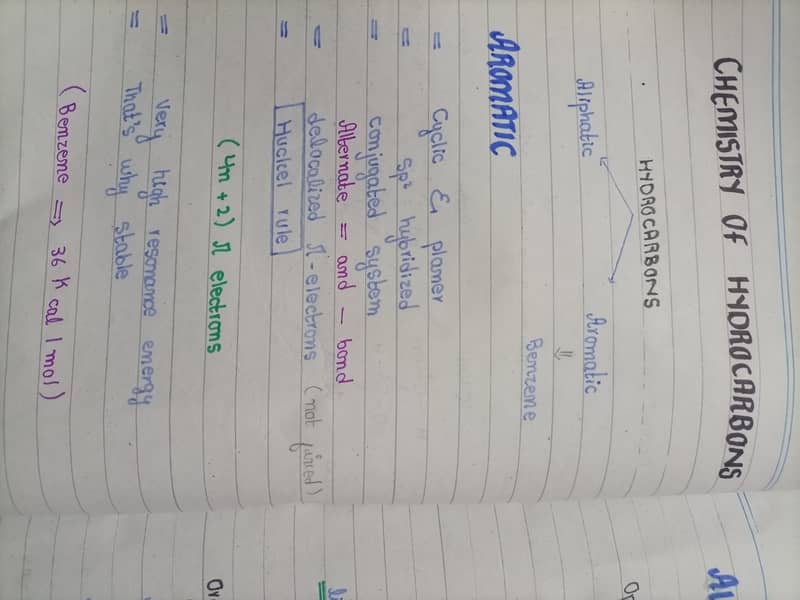 CHEMISTRY OF HYDROCARBONS
HYDROCARBONS
Aliphatic Aromatic
⇓
Benzene
AROMATIC
= Cyclic & planer
= sp² hybridized
= conjugated system
Alternate = and - bond
= delocalized π-electrons (not fixed)
= Huckel rule
(4n + 2) π electrons
= very high resonance energy
= That's why stable
(Benzene ⇒ 36 k cal / mol)